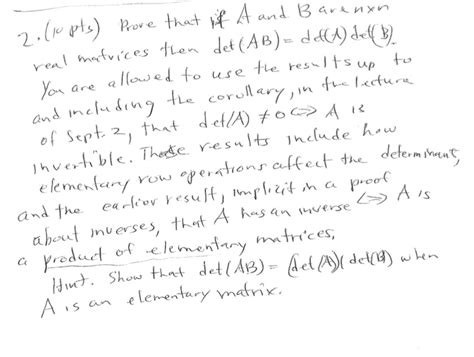 2. (10 pts) Prove that if A and B are nxn
real matrices then det(AB) = det(A) det(B).
You are allowed to use the results up to
and including the corollary, in the lecture
of Sept. 2, that det(A) ≠ 0 ⟺ A is
invertible. These results include how
elementary row operations affect the determinant,
and the earlier result, implicit in a proof
about inverses, that A has an inverse ⟺ A is
a product of elementary matrices.
Hint. Show that det(AB) = (det(A))(det(B)) when
A is an elementary matrix.